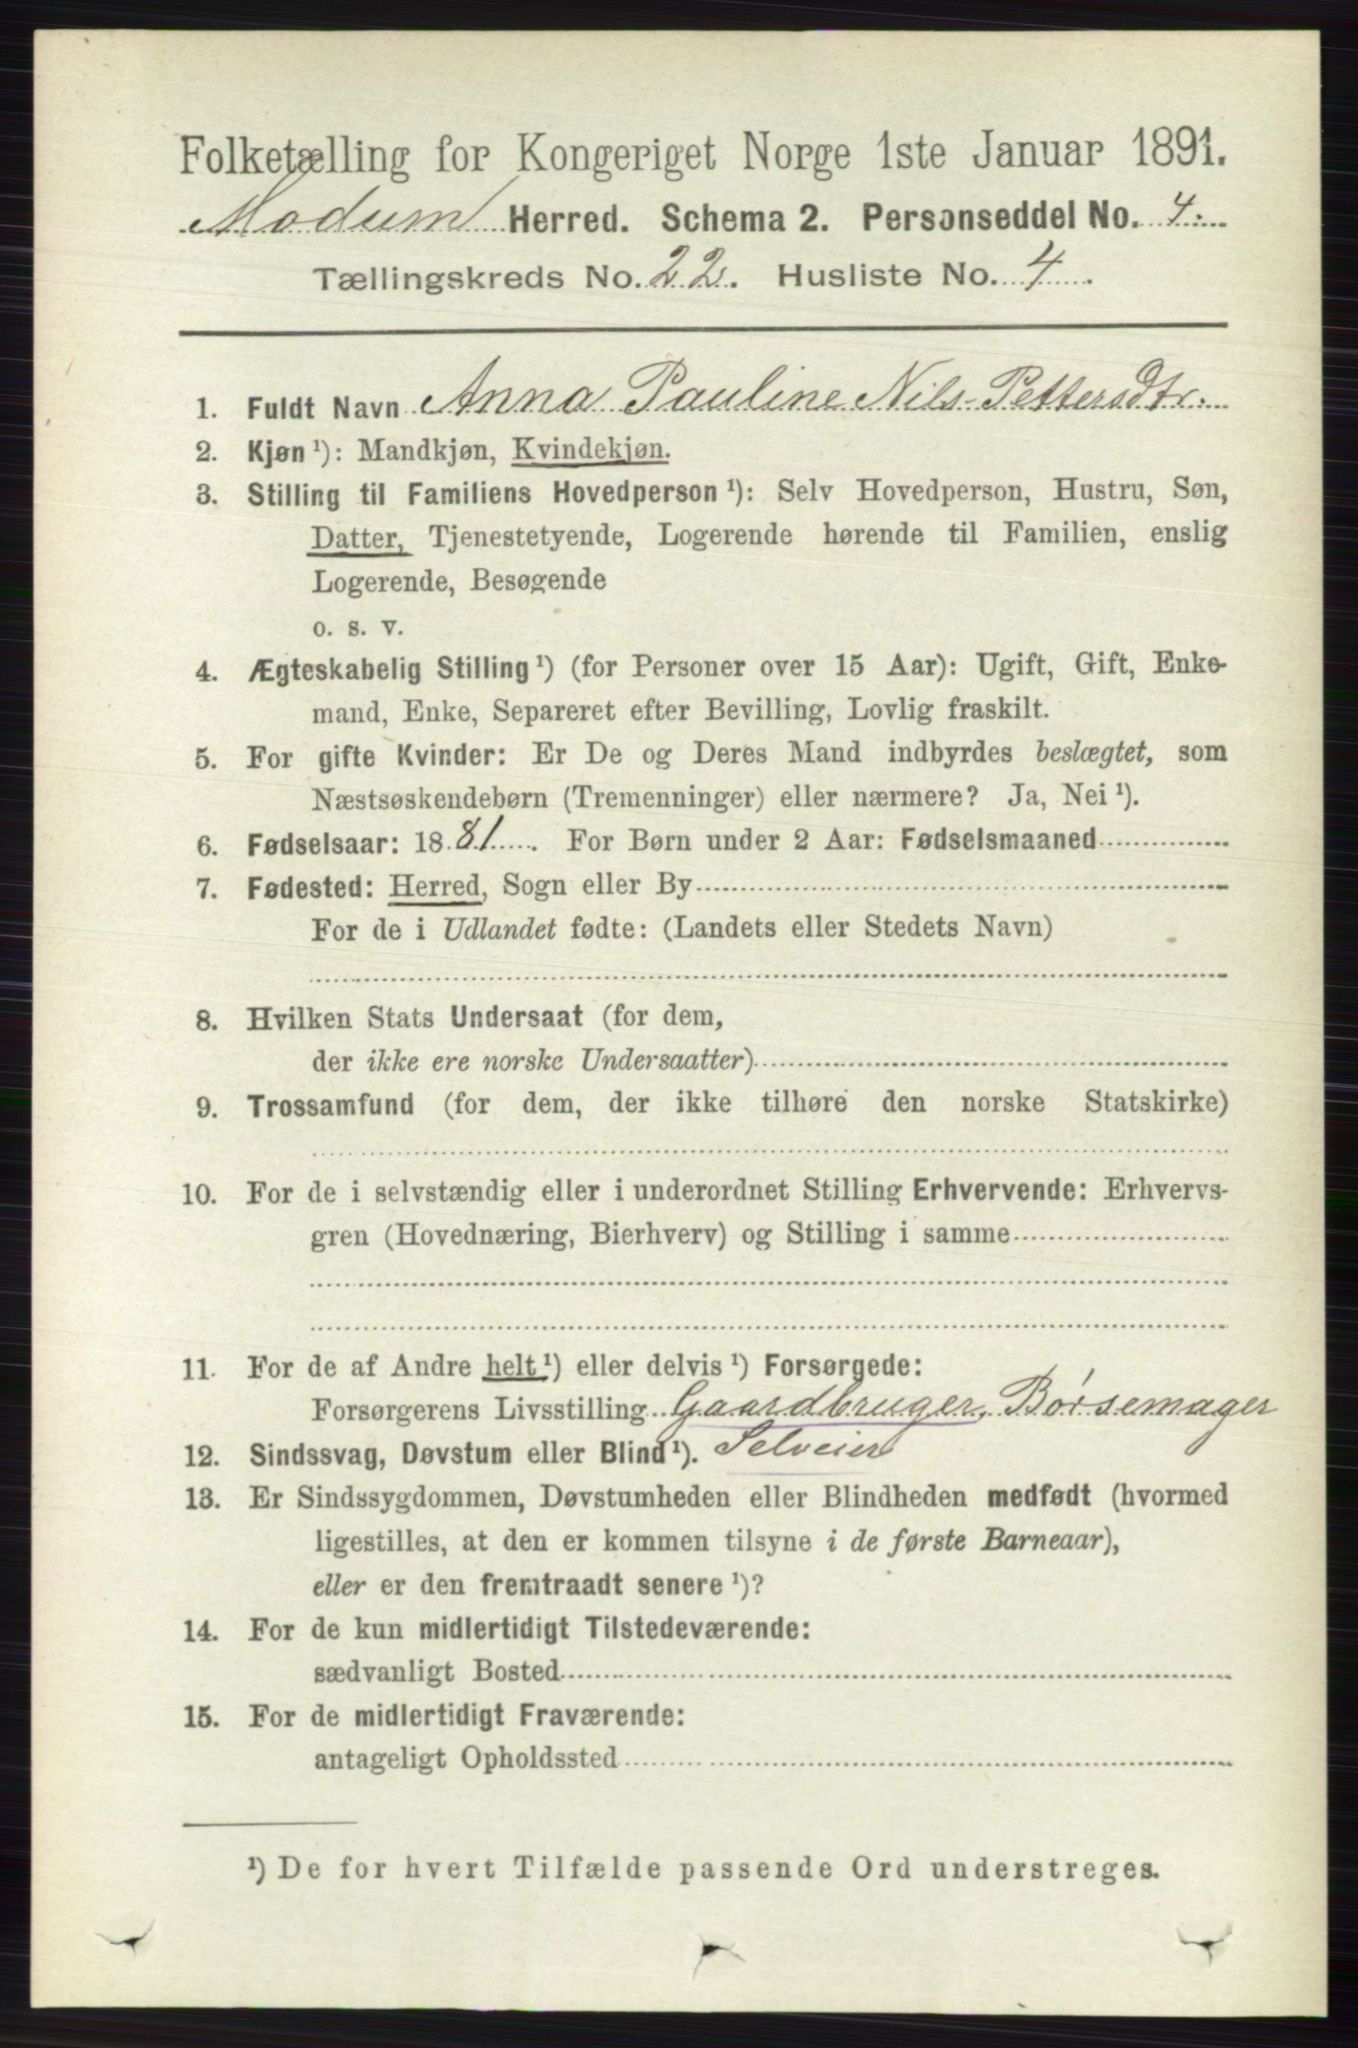 Folketælling for Kongeriget Norge 1ste Januar 1891.
Modum Herred. Schema 2. Personseddel No. 4.
Tællingskreds No. 22. Husliste No. 4.
1. Fuldt Navn Anna Pauline Nils-Pettersdtr.
2. Kjøn ¹): Mandkjøn, Kvindekjøn.
3. Stilling til Familiens Hovedperson ¹): Selv Hovedperson, Hustru, Søn,
Datter, Tjenestetyende, Logerende hørende til Familien, enslig
Logerende, Besøgende
o. s. v.
4. Ægteskabelig Stilling ¹) (for Personer over 15 Aar): Ugift, Gift, Enke-
mand, Enke, Separeret efter Bevilling, Lovlig fraskilt.
5. For gifte Kvinder: Er De og Deres Mand indbyrdes beslægtet, som
Næstsøskendebørn (Tremenninger) eller nærmere? Ja, Nei ¹).
6. Fødselsaar: 1881. For Børn under 2 Aar: Fødselsmaaned
7. Fødested: Herred, Sogn eller By
For de i Udlandet fødte: (Landets eller Stedets Navn)
8. Hvilken Stats Undersaat (for dem,
der ikke ere norske Undersaatter)
9. Trossamfund (for dem, der ikke tilhøre den norske Statskirke)
10. For de i selvstændig eller i underordnet Stilling Erhvervende: Erhvervs-
gren (Hovednæring, Bierhverv) og Stilling i samme
11. For de af Andre helt ¹) eller delvis ¹) Forsørgede:
Forsørgerens Livsstilling Gaardbruger, Børsemager
12. Sindssvag, Døvstum eller Blind ¹). Selveier
13. Er Sindssygdommen, Døvstumheden eller Blindheden medfødt (hvormed
ligestilles, at den er kommen tilsyne i de første Barneaar),
eller er den fremtraadt senere ¹)?
14. For de kun midlertidigt Tilstedeværende:
sædvanligt Bosted
15. For de midlertidigt Fraværende:
antageligt Opholdssted
¹) De for hvert Tilfælde passende Ord understreges.